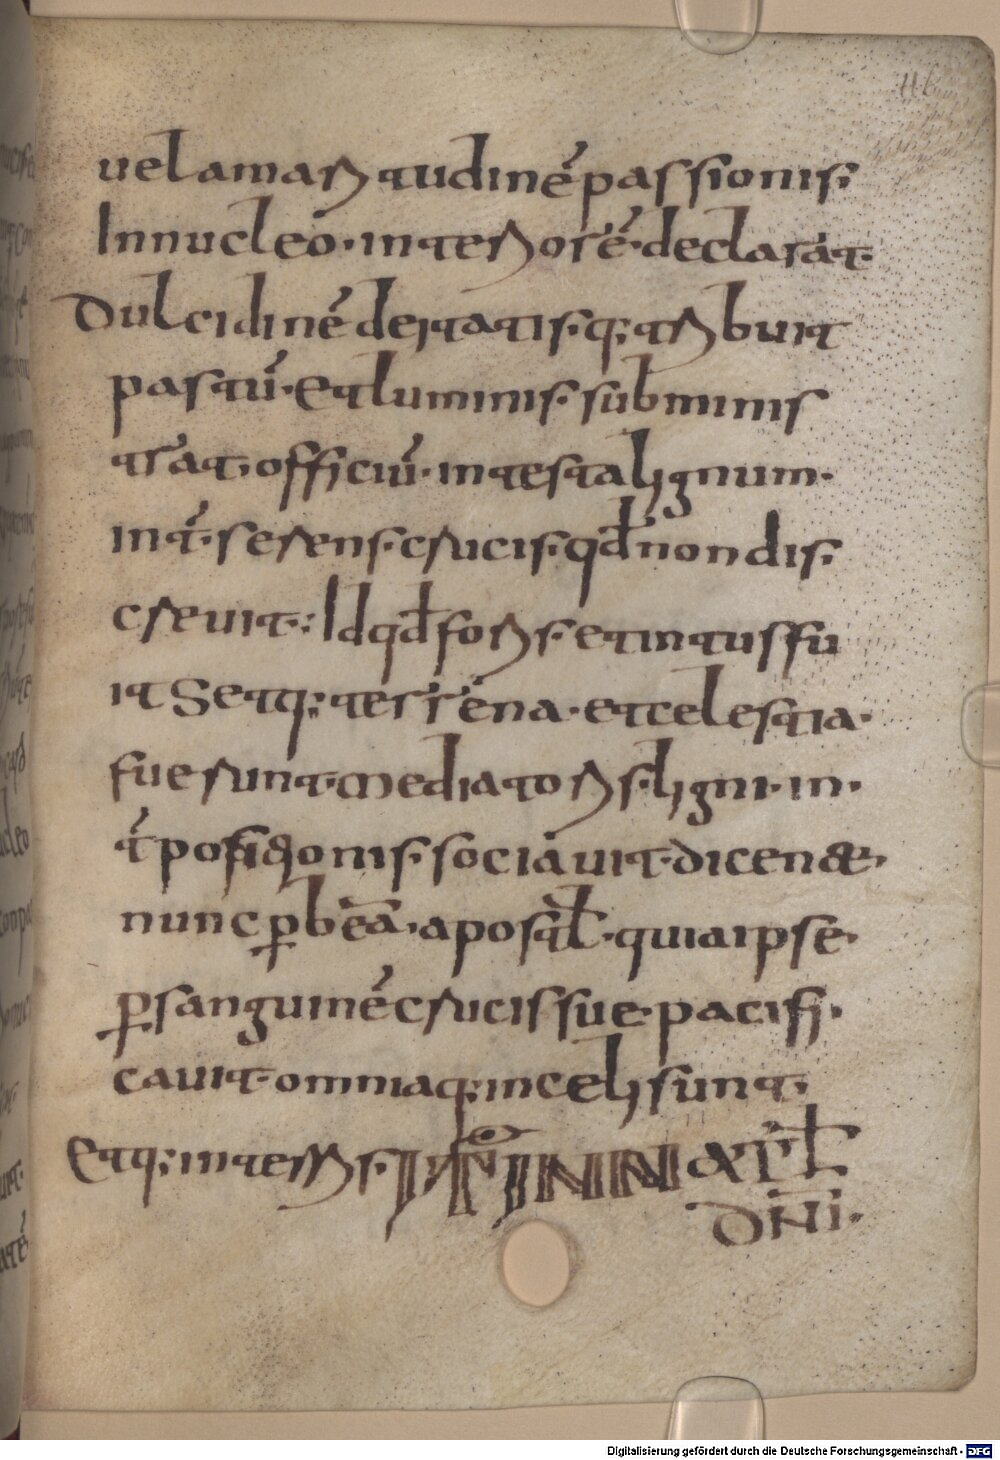 116
uel amaritudinē passionis;
In nucleo · interiorē · declarat ·
dulcidinē deitatis · q; tribuit
pastū · Et luminis · subminis
trat · officiū · in testa lignum ·
int̄ · se rens · crucis · qd̄ non dis ·
creuit · : Id qd̄ foris · et intus fu
it Set q; terrena · et celestia ·
fuerunt · mediatoris · ligni · in ·
t̄positionis · sociauit · dicente ·
nunc ꝑ beā · apostl̄ · quia ipse ·
ꝑ sanguinē crucis sue · pacifi ·
cauit · omnia q; in celis sunt ·
Et q; in terris · IT̄ IN NAT̄L
DN̄I ·
Digitalisierung gefördert durch die Deutsche Forschungsgemeinschaft - DFG